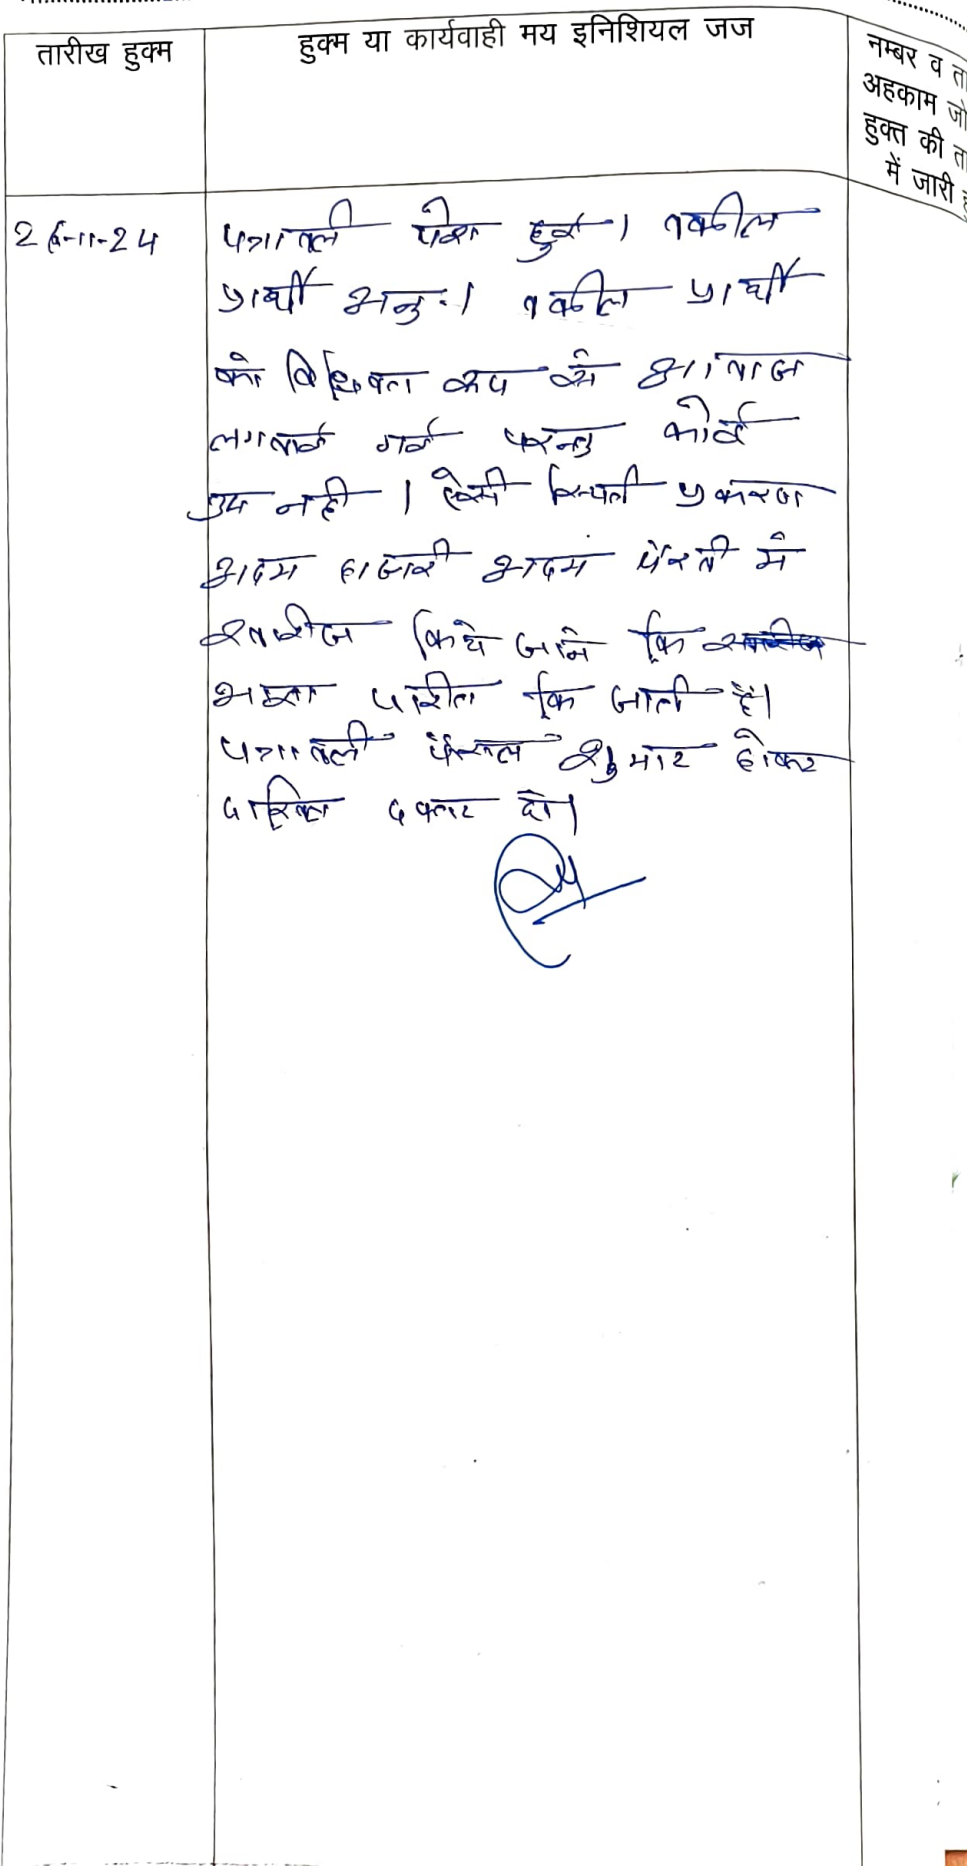 तारीख हुक्म
हुक्म या कार्यवाही मय इनिशियल जज
नम्बर व ता
अहकाम जो
हुक्त की ता
में जारी हु
26-11-24
पत्रावली पेश हुई। वकील
प्रार्थी अनु:। वकील प्रार्थी
को विधिवत रूप से आवाज
लगवाई गई परन्तु कोई
उप नही। ऐसी स्थिती प्रकरण
अदम हाजरी अदम पेरवी में
खारीज किये जाने कि खारीज
आज्ञा पारीत कि जाती है।
पत्रावली फैसल शुमार होकर
दाखिल दफ्तर हो।